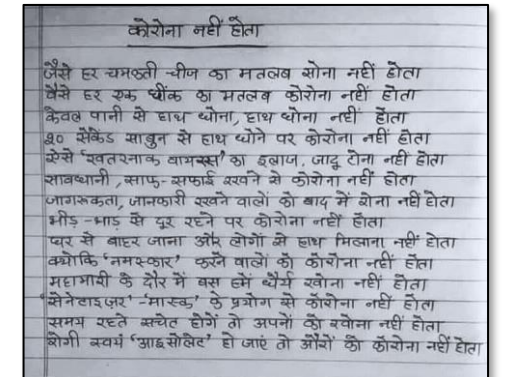 कोरोना नहीं होता
जैसे हर चमकती चीज का मतलब सोना नहीं होता
वैसे हर एक छींक का मतलब कोरोना नहीं होता
केवल पानी से हाथ धोना, हाथ धोना नहीं होता
२० सेकेंड साबुन से हाथ धोने पर कोरोना नहीं होता
ऐसे 'खतरनाक वायरस' का इलाज, जादू टोना नहीं होता
सावधानी, साफ-सफाई रखने से कोरोना नहीं होता
जागरूकता, जानकारी रखने वालों को बाद में रोना नहीं होता
भीड़-भाड़ से दूर रहने पर कोरोना नहीं होता
घर से बाहर जाना और लोगों से हाथ मिलाना नहीं होता
क्योकि 'नमस्कार' करने वालों को कोरोना नहीं होता
महामारी के दौर में बस हमें धैर्य खोना नहीं होता
'सेनेटाइज़र' 'मास्क' के प्रयोग से कोरोना नहीं होता
समय रहते सचेट होगें तो अपनों को खोना नहीं होता
रोगी स्वयं 'आइसोलेट' हो जाएं तो औरों को कोरोना नहीं होता